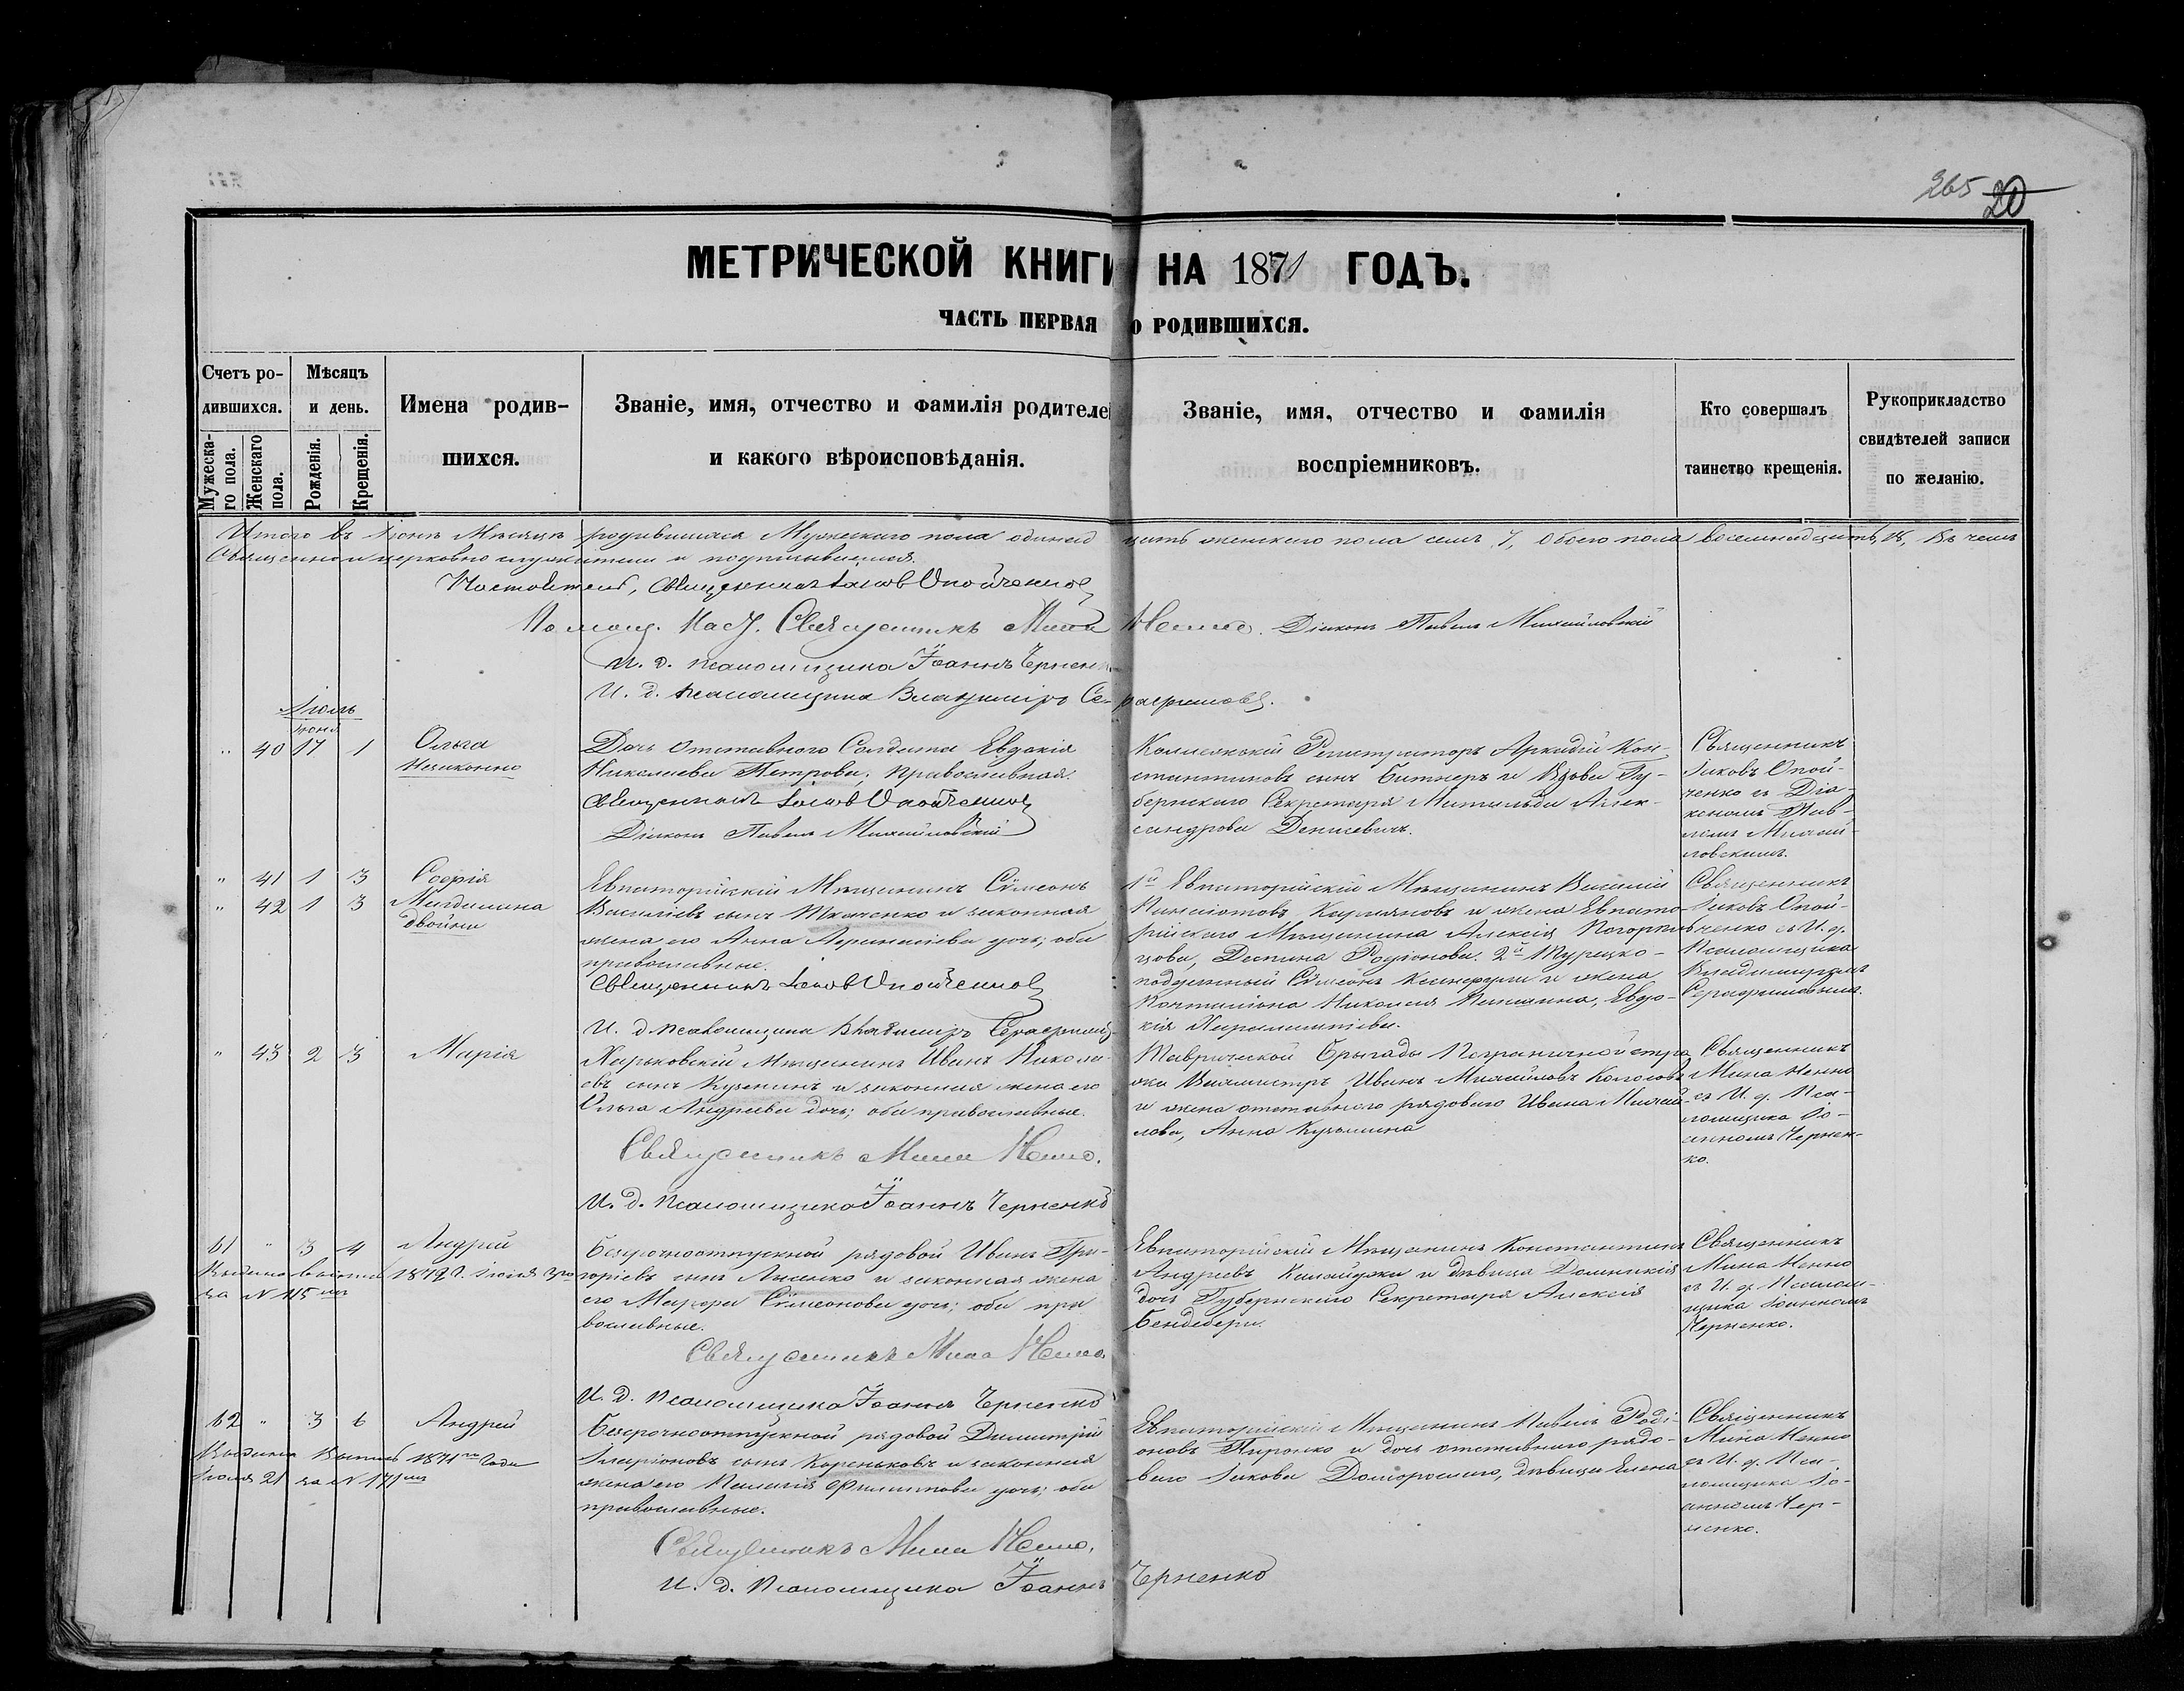 265 20
МЕТРИЧЕСКОЙ КНИГИ НА 1871 ГОДЪ.
ЧАСТЬ ПЕРВАЯ О РОДИВШИХСЯ.
Счетъ ро-
дившихся.
Мужеска-
го пола.
Женскаго
пола.
Мѣсяцъ
и день.
Рожденія.
Крещенія.
Имена родив-
шихся.
Званіе, имя, отчество и фамилія родителей
и какого вѣроисповѣданія.
Званіе, имя, отчество и фамилія
воспріемниковъ.
Кто совершалъ
таинство крещенія.
Рукоприкладство
свидѣтелей записи
по желанію.
Итого въ Іюнѣ Мѣсяцѣ родившихся Мужескаго пола одинад цать женскаго пола семь 7, Обоего пола восемнадцать, 18, Въ чемъ
Священно и церковно служители и подписываемся.
Настоятель, Священникъ Іаковъ Опойченко
Помощ. Наст. Священникъ Мина Ненно. Діаконъ Павелъ Михайловскій
И. д. псаломщика Іоаннъ Черненко
И. д. псаломщика Владиміръ Серафимовъ.
Іюль
Іюня
" 40 17 1
Ольга
Незаконно
Дочь Отставного Солдата Евдокія
Николаева Петрова; православная.
Священникъ Іаковъ Опойченко
Діаконъ Павелъ Михайловскій
Коллежскій Регистраторъ Аркадій Кон-
стантиновъ сынъ Битнеръ и Вдова Гу-
бернскаго Секретаря Матильда Алек-
сандрова Денисевичъ.
Священникъ
Іаковъ Опой-
ченко съ Діа-
кономъ Пав-
ломъ Михай-
ловскимъ.
" 41 1 3 Софія
" 42 1 3 Магдалина
двойни
Евпаторійскій Мѣщанинъ Сѵмеонъ
Василіевъ сынъ Ткаченко и законная
жена его Анна Афанасіева дочь; оба
православные.
Священникъ Іаковъ Опойченко
И. д псаломщика Владиміръ Серафимовъ
1й Евпаторійскій Мѣщанинъ Василій
и жена Евпато-
рійскаго Мѣщанина Алексія
Деспина Родіонова. 2й Турецко-
подданный Сѵмеонъ и жена
Николая Евдо-
кія Харалампіева.
Священникъ
Іаковъ Опой-
ченко съ И. д.
Псаломщика
Владиміромъ
Серафимовымъ.
" 43 2 3 Марія
Харьковскій Мѣщанинъ Иванъ Никола-
евъ сынъ Кузенинъ и законная жена его
Ольга Андреева дочь; оба православные.
Священникъ Мина Ненно.
И. д. псаломщика Іоаннъ Черненко
Таврической Бригады Пограничной стра
жи Вахмистръ Иванъ Михайловъ Колосовъ
и жена отставного рядоваго Ивана Михай-
лова, Анна Кузьмина
Священникъ
Мина Ненно
съ И. д. Пса-
ломщика Іо-
анномъ Чернен-
ко.
61 " 3 4 Андрей
за N 115 мъ
Безсрочноотпускной рядовой Иванъ Гри-
горіевъ сынъ Лысенко и законная жена
его Марфа Сѵмеонова дочь; оба пра
вославные.
Священникъ Мина Ненно.
И. д. Псаломщика Іоаннъ Черненко
Евпаторійскій Мѣщанинъ Константинъ
Андреевъ и дѣвица Домникія
дочь Губернскаго Секретаря Алексія
Бендебери.
Священникъ
Мина Ненно
съ И. д. Псалом-
щика Іоанномъ
Черненко.
62 " 3 6 Андрей
Выдана Выпись 1871го Года
Іюля 21 за N 171мъ
Безсрочноотпускной рядовой Димитрій
Иларіоновъ сынъ Кореньковъ и законная
жена его Пелагія Филиппова дочь; оба
православные.
Священникъ Мина Ненно,
И. д. Псаломщика Іоаннъ Черненко
Евпаторійскій Мѣщанинъ Павелъ Роді-
оновъ и дочь отставного рядо-
ваго Іакова дѣвица Елена
Священникъ
Мина Ненно
съ И. д. Пса-
ломщика Іо-
анномъ Чер-
ненко.